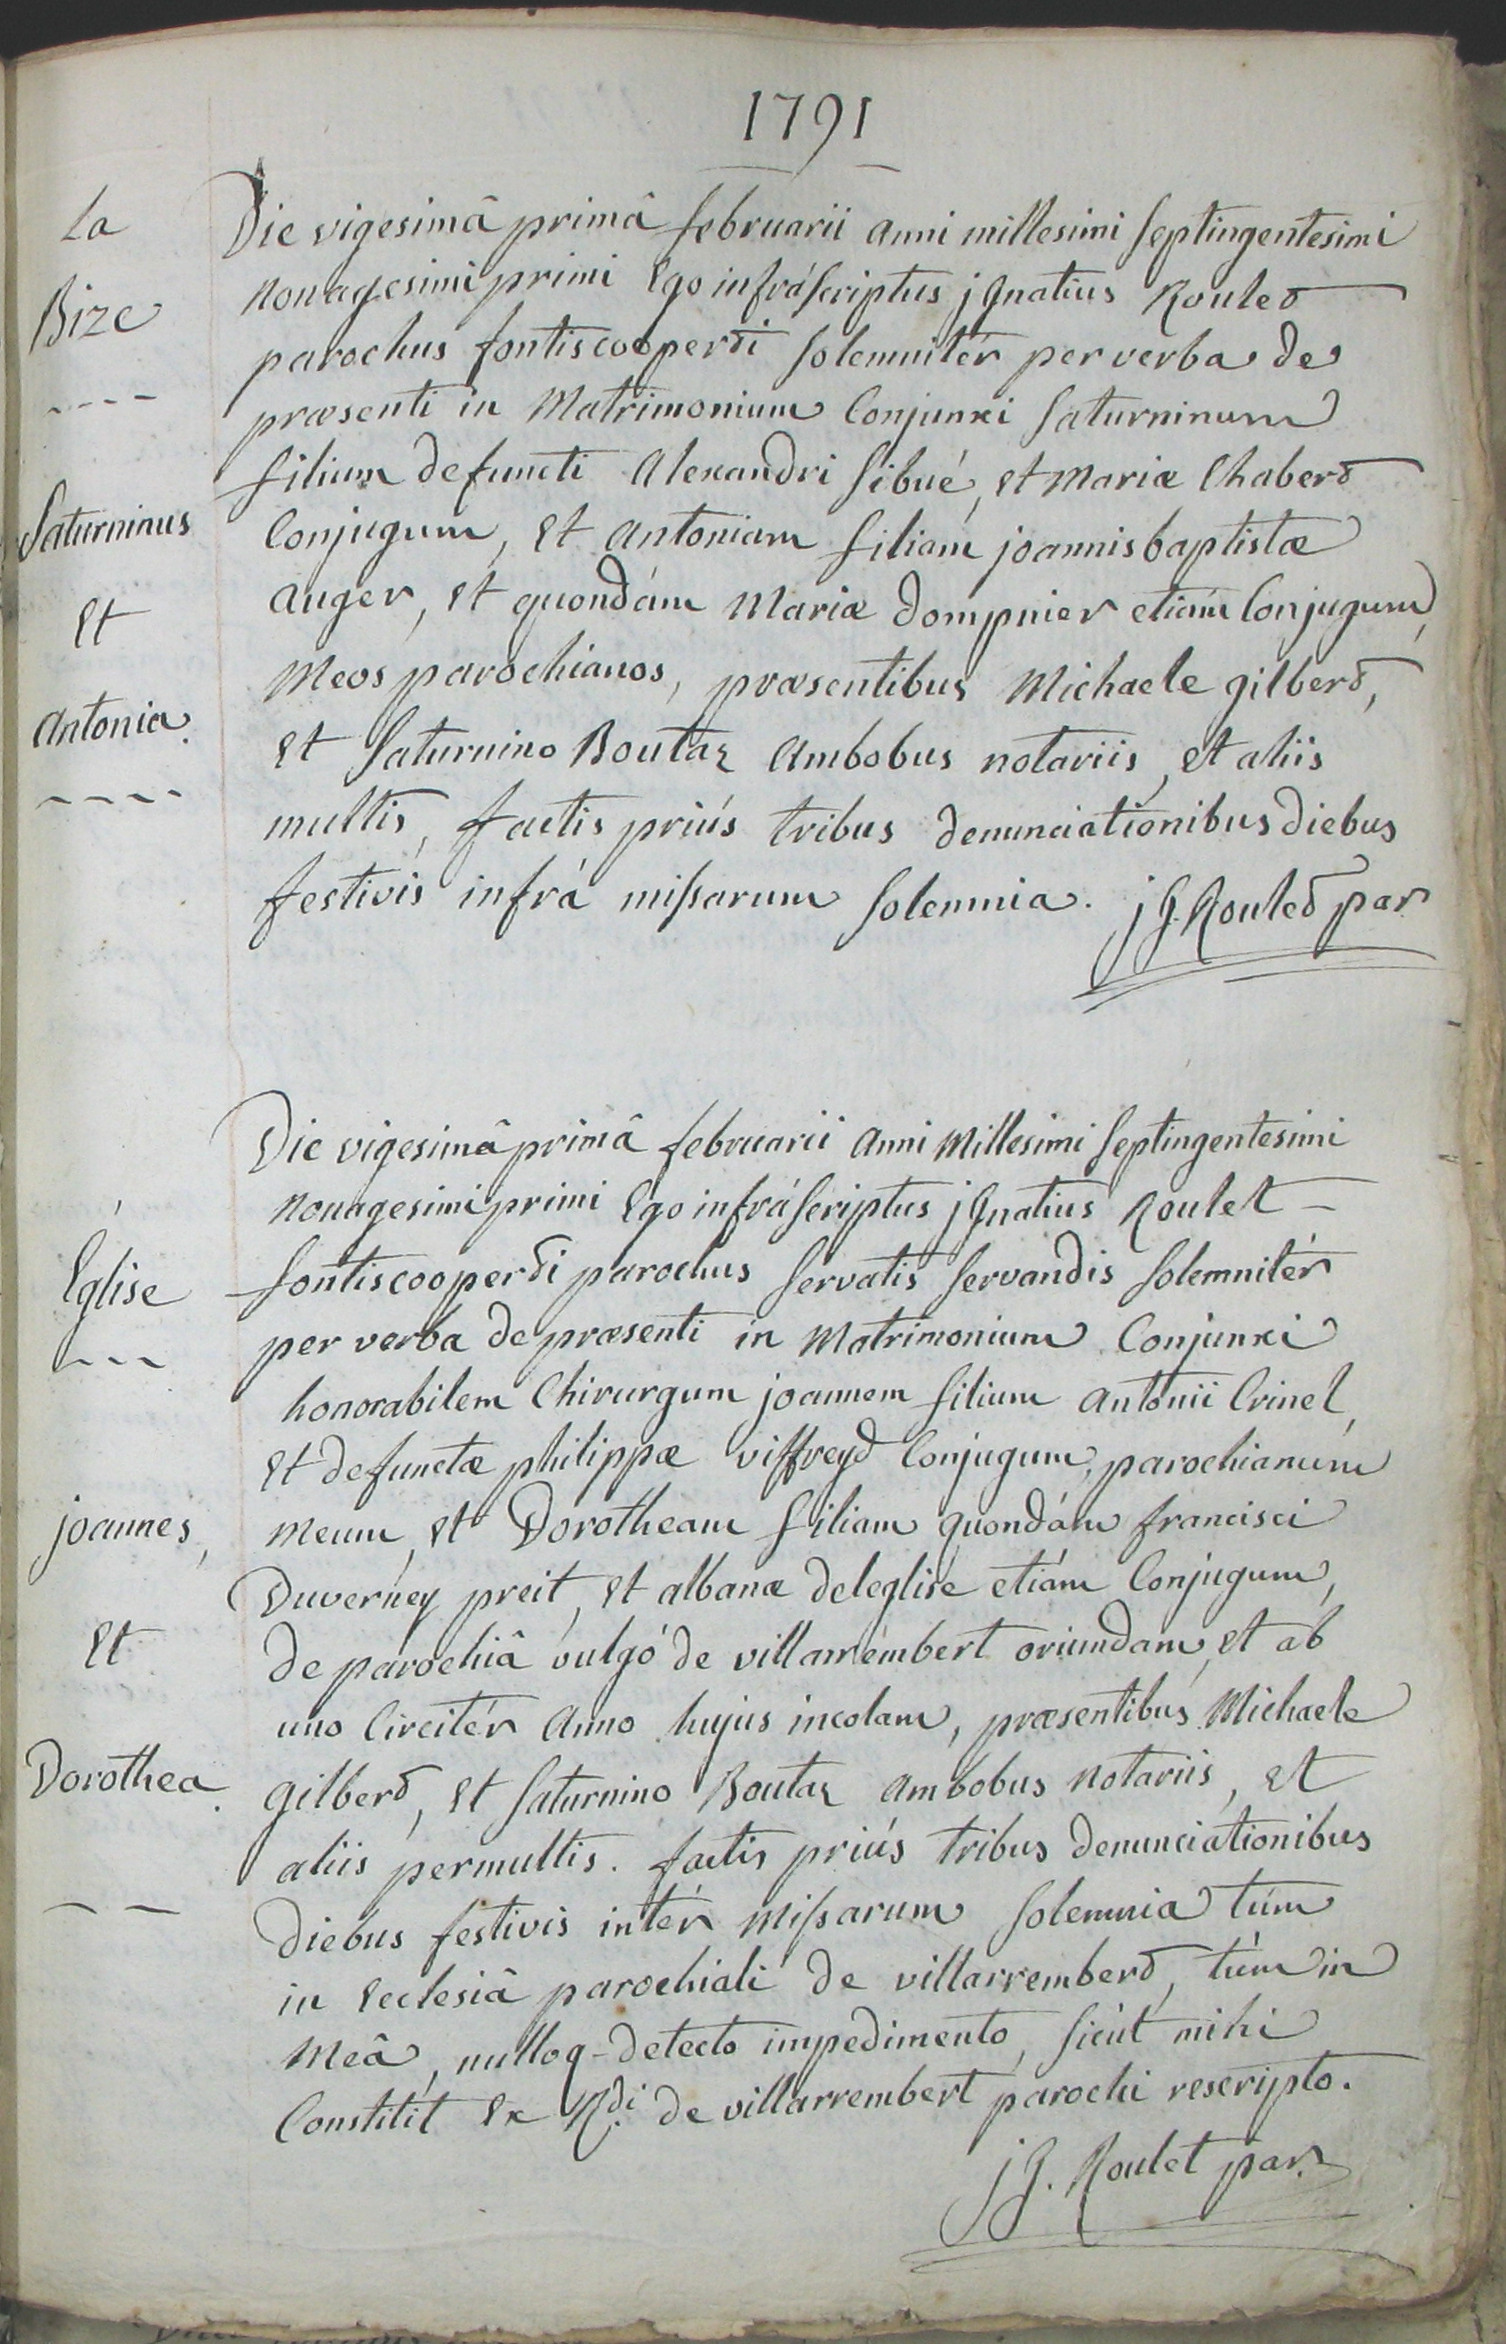 1791
La
Bize
Saturninus
Et
Antonia.
Die vigesimâ primâ februarii anni millesimi septingentesimi
nonagesimi primi Ego infráscriptus jgnatius Roulet
parochus fontiscooperti solemnitér per verba de
præsenti in Matrimonium Conjunxi Saturninum
filium defuncti Alexandri Sibué, et Mariæ Chabert
Conjugum, Et Antoniam filiam joannisbaptistæ
Auger, Et quondám Mariæ Dompnier etiám Conjugum,
Meos parochianos, præsentibus Michaele gilbert,
Et Saturnino Boutaz Ambobus notariis, et aliis
multis, factis priús tribus denunciationibus diebus
festivis infrá missarum solemnia. jg. Roulet par.
Eglise
joannes,
Et
Dorothea.
Die vigesimâ primâ februarii anni Millesimi septingentesimi
nonagesimi primi Ego infráscriptus jgnatius Roulet
fontiscooperti parochus servatis servandis solemnitér
per verba de præsenti in Matrimonium Conjunxi
honorabilem Chirurgum joannem filium Antonii Crinel,
Et defunctæ philippæ viffreyd Conjugum, parochianum
meum, et Dorotheam filiam quondám francisci
Duverney preit, Et albanæ deleglise etiám Conjugum,
de parochiâ vulgó de villarrembert oriundam, et ab
uno Circitér Anno hujus incolam, præsentibus Michaele
gilbert, Et Saturnino Boutaz Ambobus Notariis, et
aliis permultis. factis priús tribus denunciationibus
diebus festivis intér Missarum solemnia túm
in Ecclesiâ parochiali de villarrembert, túm in
Meâ, nulloq- detecto impedimento, sicút mihi
Constitit Ex Rdi. de villarrembert parochi rescripto.
jg. Roulet par.